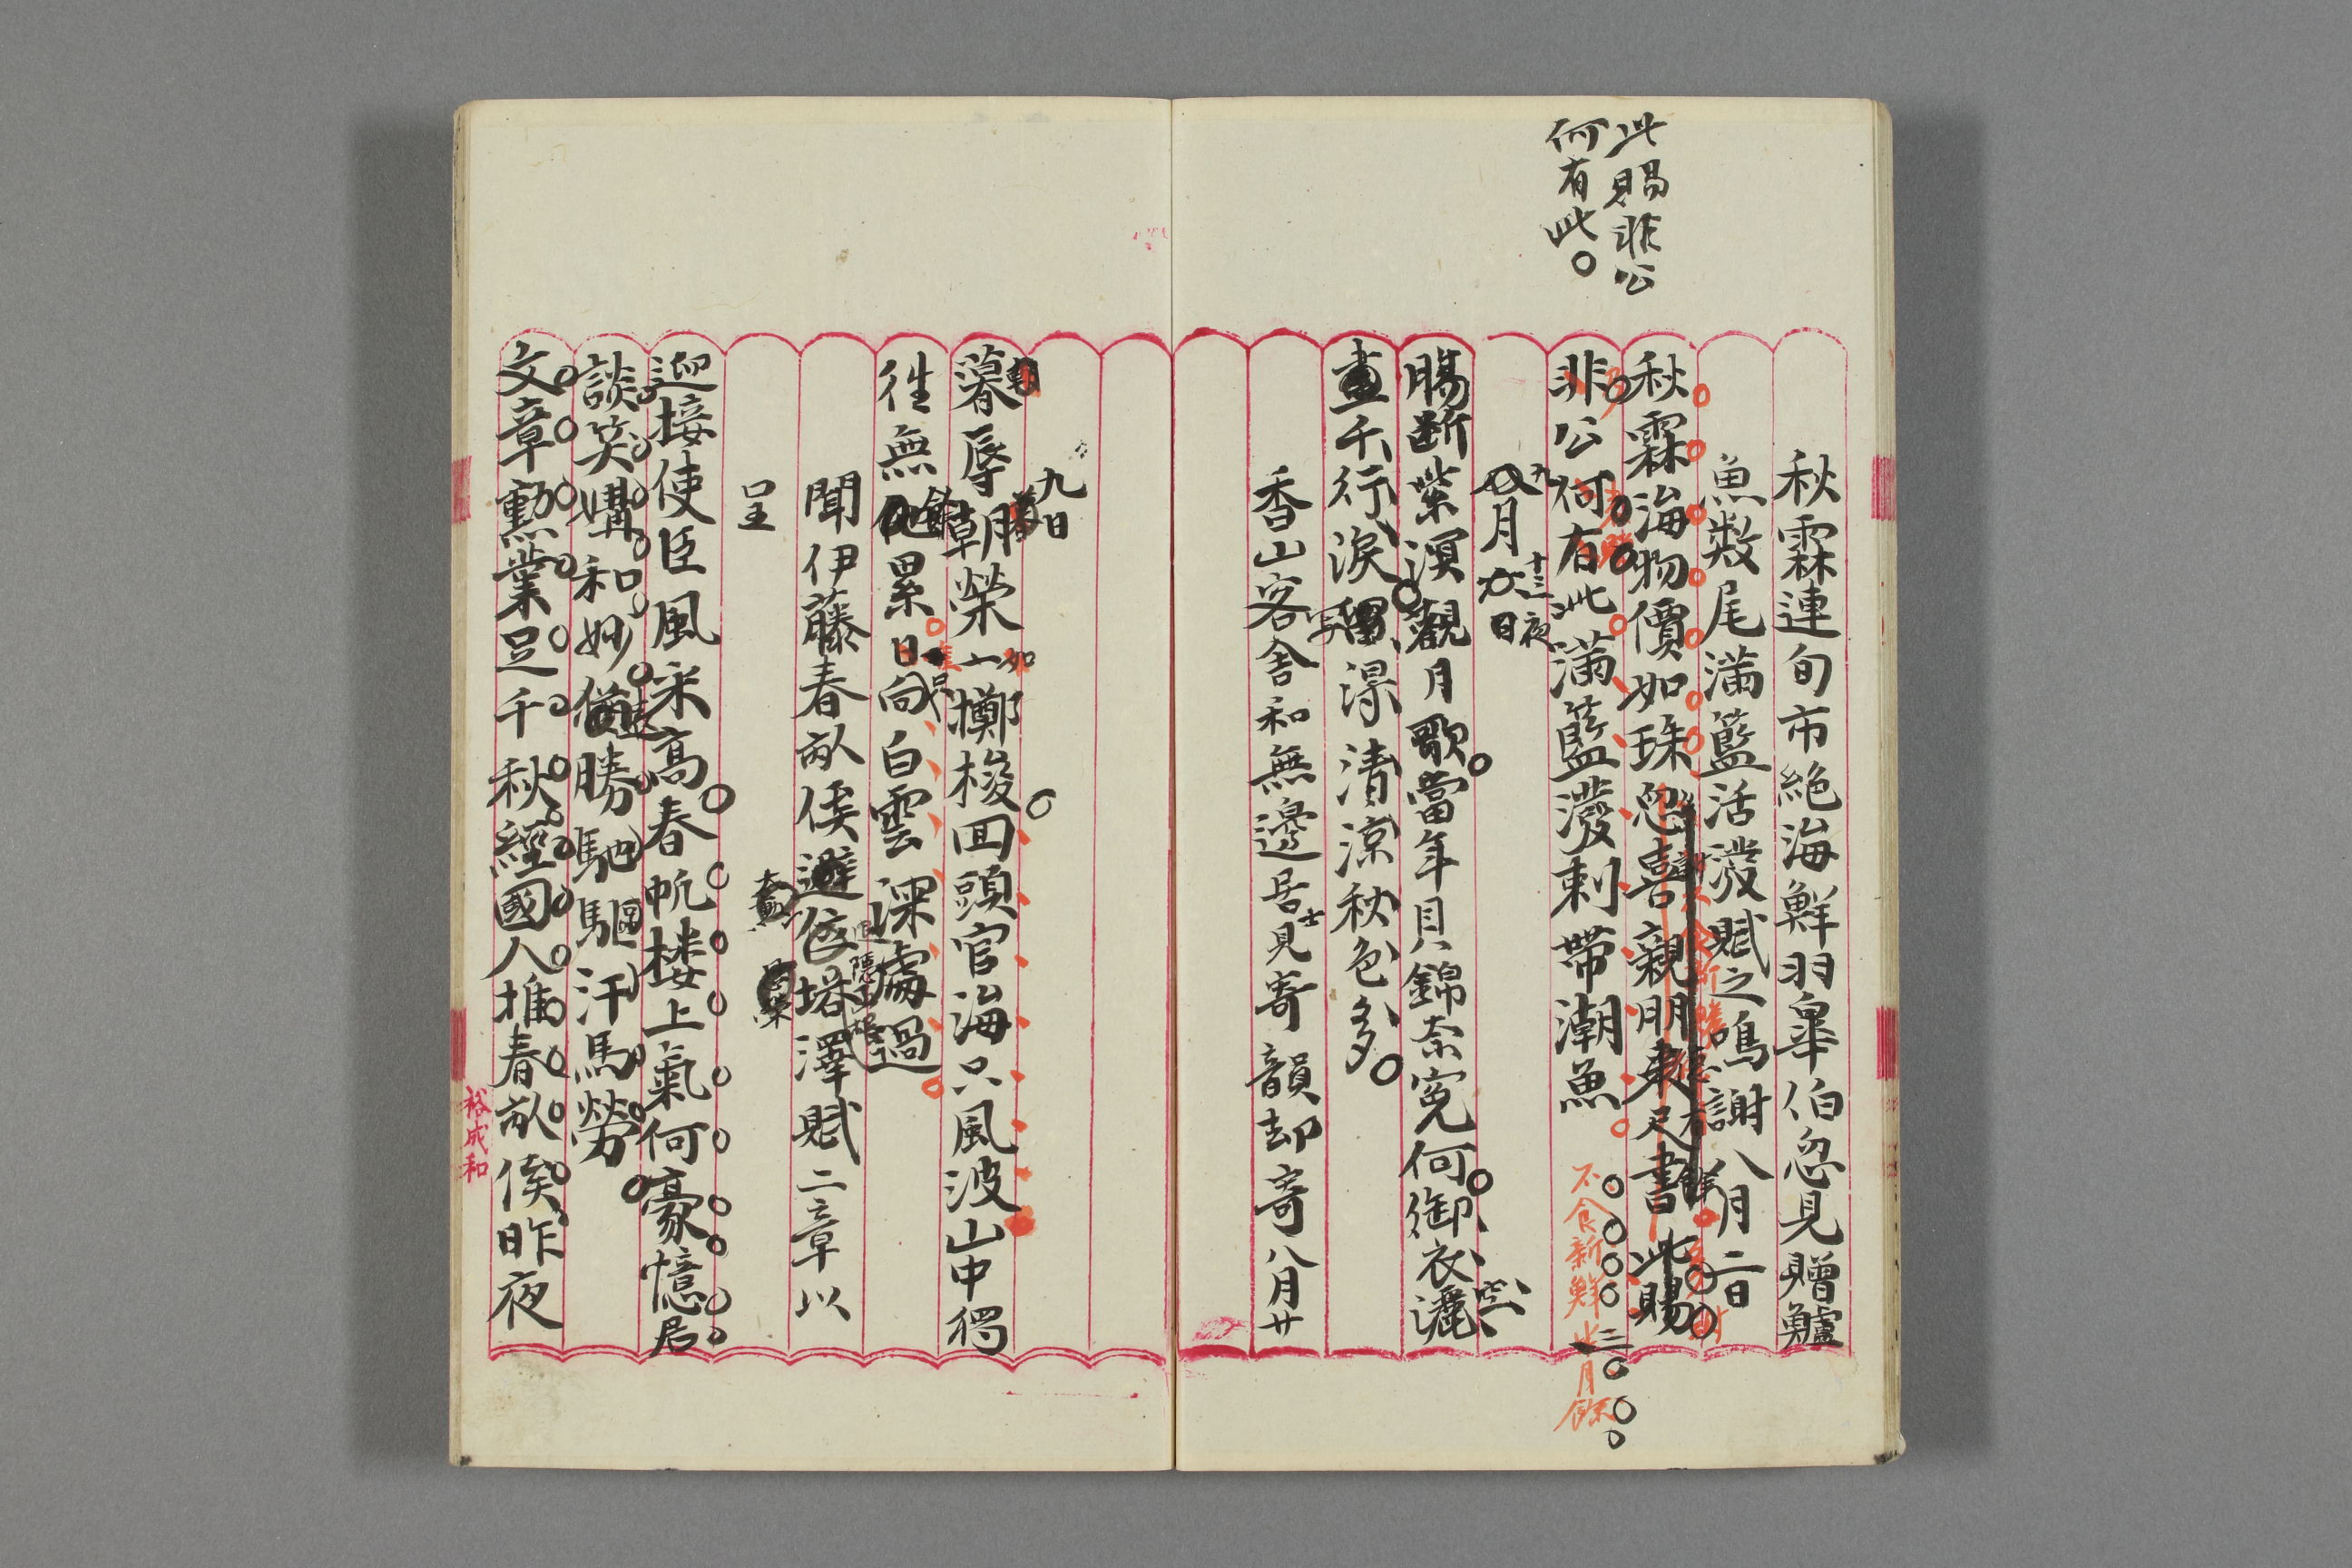 此賜非公
何有此
秋霖連旬市絶海鮮羽皐伯忽見贈鱸
魚数尾満籃活溌賦之鳴謝八月二日
秋霖海物價如珠忽喜親朋束尺書此賜
非公何有此満籃溌剌帯潮魚
不食新鮮三月餘
九月十三夜
腸断紫溟觀月歌當年貝錦奈寃何御衣灑
盡千行涙写得清涼秋色多
香山客舎和無邊居士見寄韻却寄八月廿
九日
暮辱朝榮如擲梭回頭官海只風波山中獨
往無餘累只向白雲深處過
聞伊藤春畝侯避塔澤賦二章以
呈
迎接使臣風采高春帆楼上氣何豪憶君
談笑媾和妙勝馳駆汗馬勞
文章勲業足千秋經國人推春畝侯昨夜
裕成和